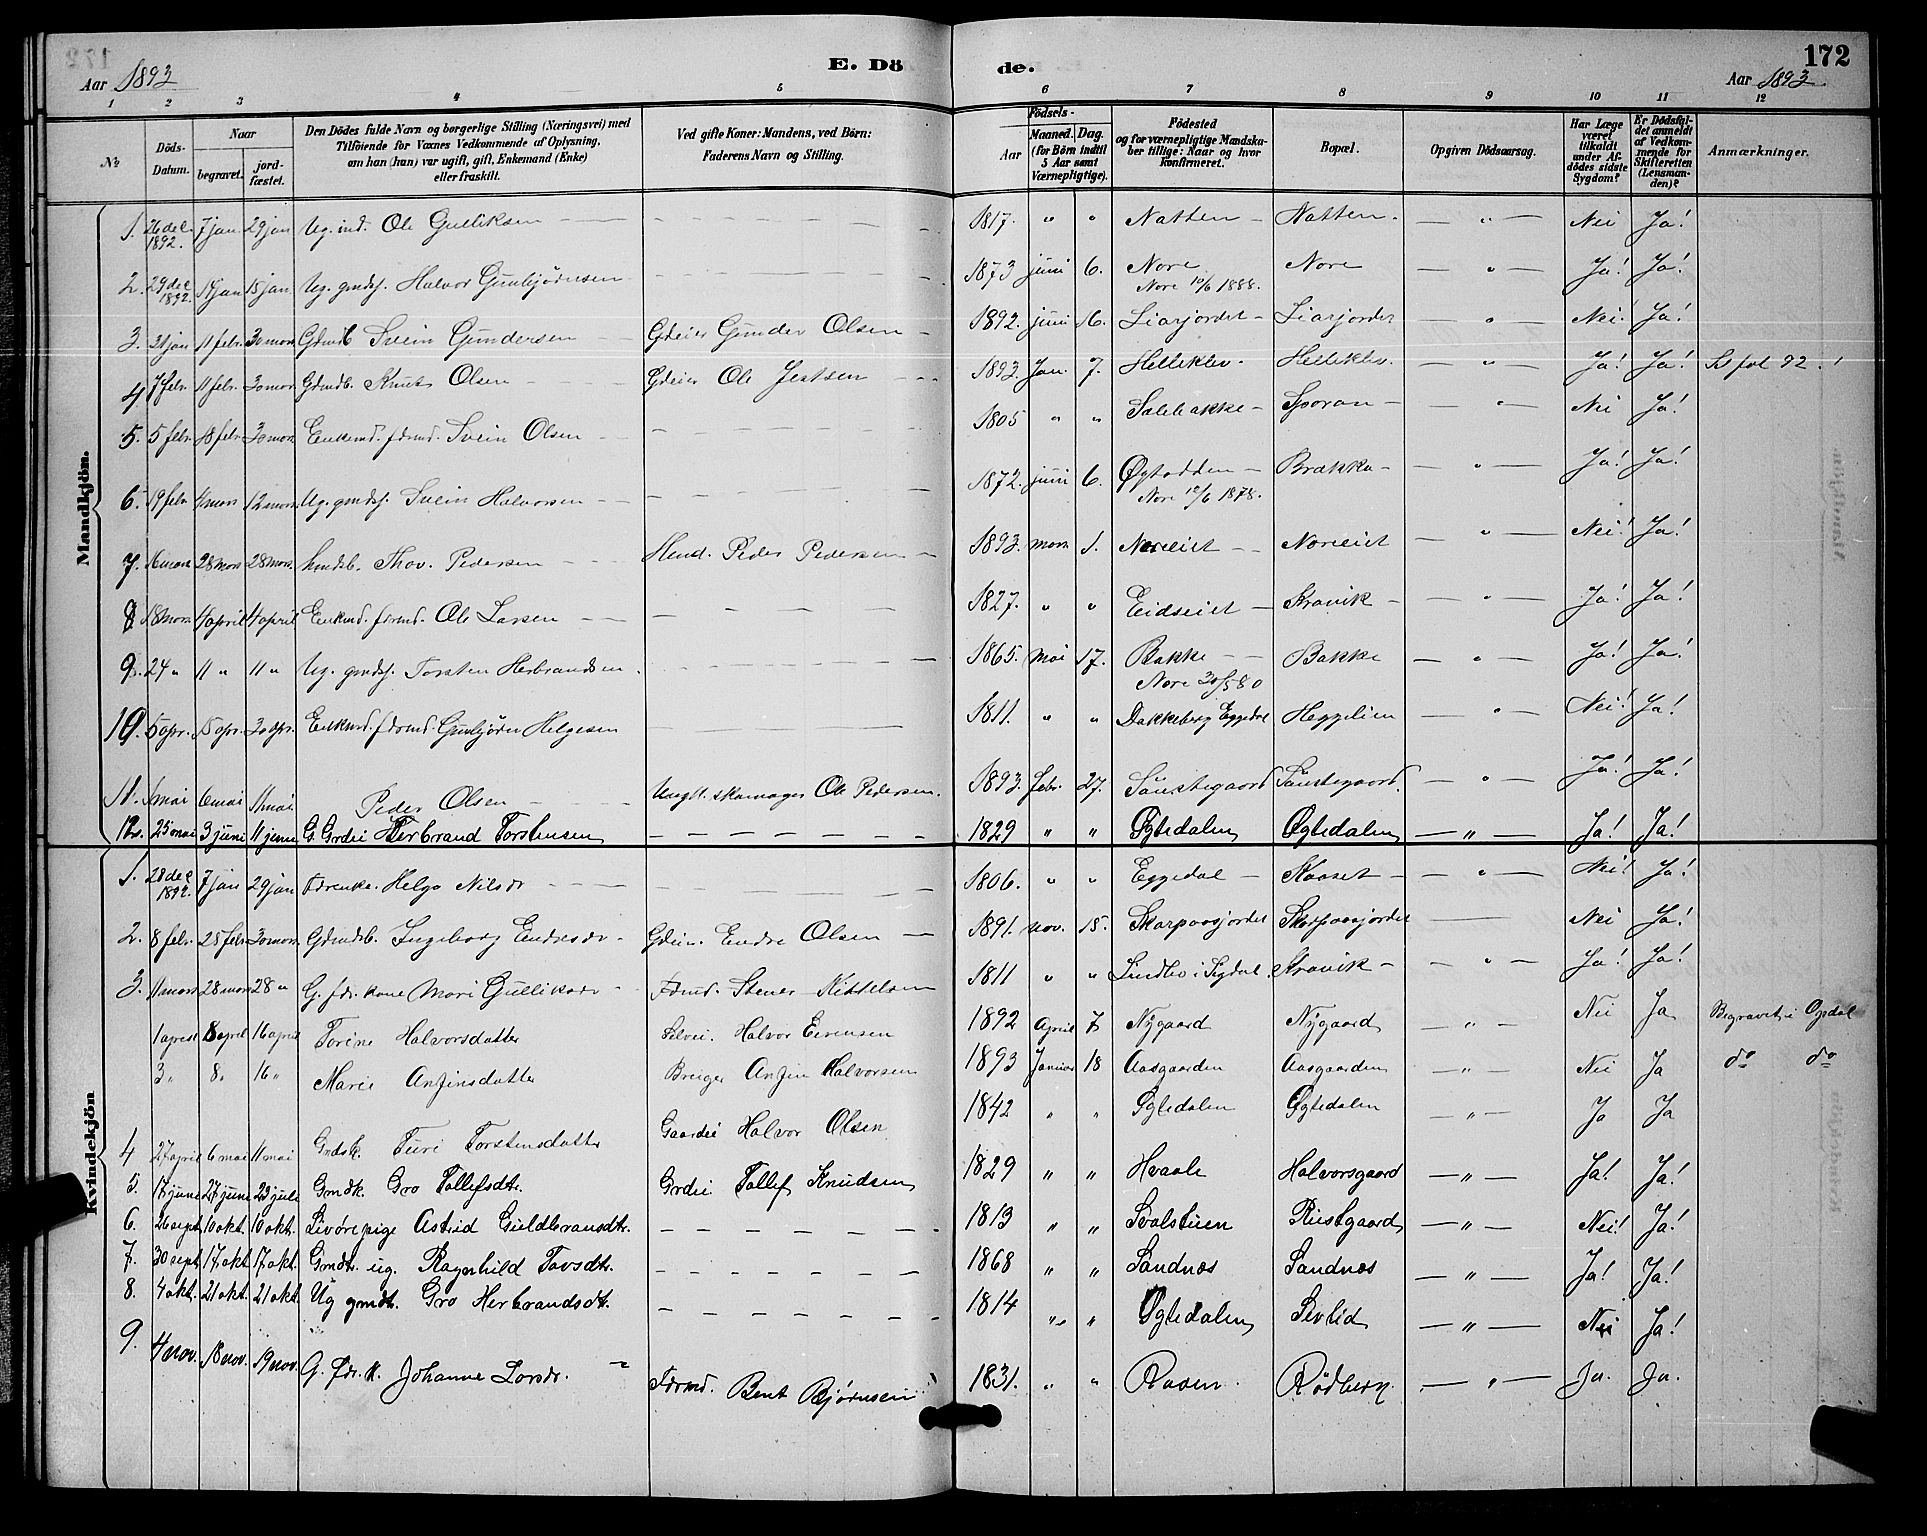 172
Aar 1893
E. Döde.
Aar 1893
1 2 3 4 5 6 7 8 9 10 11 12
No
Döds-Datum.
Naar begravet. jordfæstet.
Den Dödes fulde Navn og borgerlige Stilling (Næringsvei) med Tilföiende for Voxnes Vedkommende af Oplysning, om han (hun) var ugift, gift, Enkemand (Enke) eller fraskilt.
Ved gifte Koner: Mandens, ved Børn: Faderens Navn og Stilling.
Födsels-
Aar
Maaned. Dag. (for Börn indtil 5 Aar samt Værnepligtige).
Födested og for værnepligtige Mandskaber tillige: Naar og hvor konfirmeret.
Bopæl.
Opgiven Dödsaarsag.
Har Læge været tilkaldt under Afdødes sidste Sygdom?
Er Dødsfaldet anmeldt af Vedkommende for Skifteretten (Lensmanden)?
Anmærkninger.
Mandkjön.
1. 26 dec. 1892. 7 jan 29 jan Ug. ind. Ole Gulliksen 1817. " " Natten Natten. — " — Nei Ja!
2. 29 dec 1892. 14 jan 15 jan. Ug. gmdss. Halvor Gunbjørnsen 1873 juni 6. Nore Nore 10/6 1888. Nore — " — Ja! Ja!
3. 31 jan 11 febr. 30 mars Gdmdb Svein Gundersen Gdeier Gunder Olsen 1892. juni 16. Liarjordet Liarjordet — " — Nei! Ja!
4 7 febr. 11 febr. 30 mars Gdmdb. Knut Olsen Gdeier Ole Jestsen 1893. Jan. 7. Helleklev. Helleklev. — " — Ja! Ja! Se fol 92.!
5. 5 febr. 18 febr. 30 mars. Enkemd. fdrmd. Svein Olsen 1805 " " Salebakke Sporan — " — Nei Ja!
6. 19 febr. 4 mars 12 mars. Ug. gmdss. Svein Halvorsen 1872. juni 6. Øgtodden Nore 10/6 1878. Brække — " — Ja! Ja!
7. 16 mars 28 mars 28 mars. hmdsb. Thov. Pedersen Hmd. Peder Pedersen 1893. mars 1. Noreeiet Noreeiet — " — Nei! Ja!
8. 18 mars 11 april 11 april Enkmd. fdrmd. Ole Larsen 1827. " " Eidseiet Kravik — " — Ja! Ja!
9. 24 " 11 " 11 " Ug. gmdss. Torsten Herbrandsen. 1865. Mai 17. Bakke Nore 30/5 80 Bakke — " — Ja! Ja!
10. 5 apr. 15 apr. 30 apr. Enkmd. fdrmd. Gunbjørn Helgesen 1811. " " Dakkeberg Eggedal Heggelien — " — Nei! Ja!
11. 1 mai 6 mai 11 mai. Peder Olsen Ungk. skomager Ole Pedersen. 1893. febr. 27. Sønstegaard Sønstegaard. — " — Ja! Ja!
12. 25 mai 3 juni 11 juni G. Grdei Herbrand Torstensen 1829 " " Øgtedalen Øgtedalen — " — Ja! Ja!
Kvindekjön
1. 28 dec 1892. 7 jan 29 jan Fdrenke. Helga Nilsdr 1806. " " Eggedal Kaaset — " — Nei! Ja!
2. 8 febr. 25 febr. 30 mars. Gdmdsb. Ingeborg Endresdr Gdeier. Endre Olsen 1891. nov. 15. Skarpaasjordet Skarpaasjordet — Nei Ja!
3. 11 mars 28 mars 28 " G. fdr. kone Mari Gulliksdr Fdrmd. Stener Kittelsen 1811 " " Lindbo i Sigdal. Kravik — " — Ja! Ja!
1 april 8 april 16 april Torine Halvorsdatter Selvei. Halvor Evensen 1892 April 7 Nygaard Nygaard — " — Nei Ja Begravet i Opdal
3 " 8 " 16 " Marie Anfinsdatter Bruger Anfin Halvorsen 1893 Januar 18 Aasgaarden Aasgaarden — " — Nei Ja do do
4 27 april 6 mai 11 mai Gmdsk. Turi Torstensdatter Gaardei Halvor Olsen 1842 " " Øgtedalen Øgtedalen — " — Ja Ja
5. 17 juni 27 juni 23 juli Gmdk. Gro Tollefsdtr. Grdei Tollef Knudsen 1829 " " Hvaale Halvorsgaard — " — Ja! Ja!
6. 26 sept. 10 okt. 10 okt. Livørepige Astrid Guldbrandsdtr. 1813 " " Svalstuen Rustgaard — " — Nei! Ja!
7. 30 sept. 17 okt. 17 okt. Gmdtr. ug. Ragnhild Tovsdtr. 1868 " " Sandnæs Sandnæs — " — Ja! Ja!
8. 4 okt. 21 okt. 21 okt. Ug gmdt. Gro Herbrandsdt. 1814 " " Øgtedalen Sevlid — " — Nei Ja!
9. 4 nov. 18 nov. 19 nov. G. fdr. k. Johanne Larsdr. Fdrmd. Bent Bjørnsen 1831. " " Raaen. Rødberg. — " — Ja. Ja.